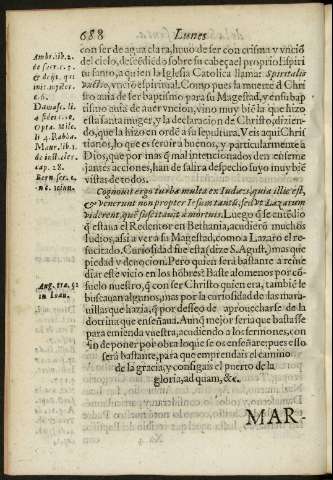 688 Lunes
con ser de agua clara, huvo de ser con crisma y vnció
del cielo, descēdido sobre su cabeça el propio Espiri
tu santo, a quien la Iglesia Catolica llama: Spiritalis
vnctio, vnción espiritual. Como pues la muerte d̄ Chri
sto auia de ser baptismo para su Magestad, y en su bap
tismo auia de auer vncion, vino muy biē la que hizo
esta santa muger, y la declaracion de Christo, diziendo,
que la hizo en ordē a su sepultura. Veis aqui Chris
tianos, lo que es seruir a buenos, y particularmente a
Dios, que por mas q̄ mal intencionados den en seme
jantes acciones, han de salir a despecho suyo muy biē
vistas de todos.
Cognouit ergo turba multa ex Iudæis, quia illic est,
& venerunt non propter Iesum tantū, sed vt Lazarum
viderent, quē suscitauit à mortuis. Luego q̄ se entēdio
q̄ estaua el Redentor en Bethania, acudierō muchos
Iudios, assi a ver a su Magestad, como a Lazaro el re-
sucitado. Curiosidad fue esta (dize S. August.) mas que
piedad y deuocion. Pero quien será bastante a reine
diar este vicio en los hōbres? Baste alomenos por cō
suelo nuestro, q̄ con ser Christo quien era, tambiē le
buscauan algunos, mas por la curiosidad de las mara-
uillas que hazia, que por desseo de aprouecharse de la
doctrina que enseñaua. Aunq̄ mejor seria que bastasse
para emienda vuestra, acudiendo a los sermones, con
fin de poner por obra lo que se os enseñare: pues esso
será bastante, para que emprendais el camino
de la gracia, y consigais el puerto de la
gloria, ad quam, &c.
MAR-
Ambr. lib. 2.
de sacr. c. 7.
& de ijs. qui
init. myster.
c. 6.
Damasc. li.
4 fidei c. 10.
Opta. Mile.
li. 4. Rabba.
Maur. lib. 1.
de inst. cler.
cap. 28.
Bern. ser. 1.
Aug. tra. 50
in Ioan.